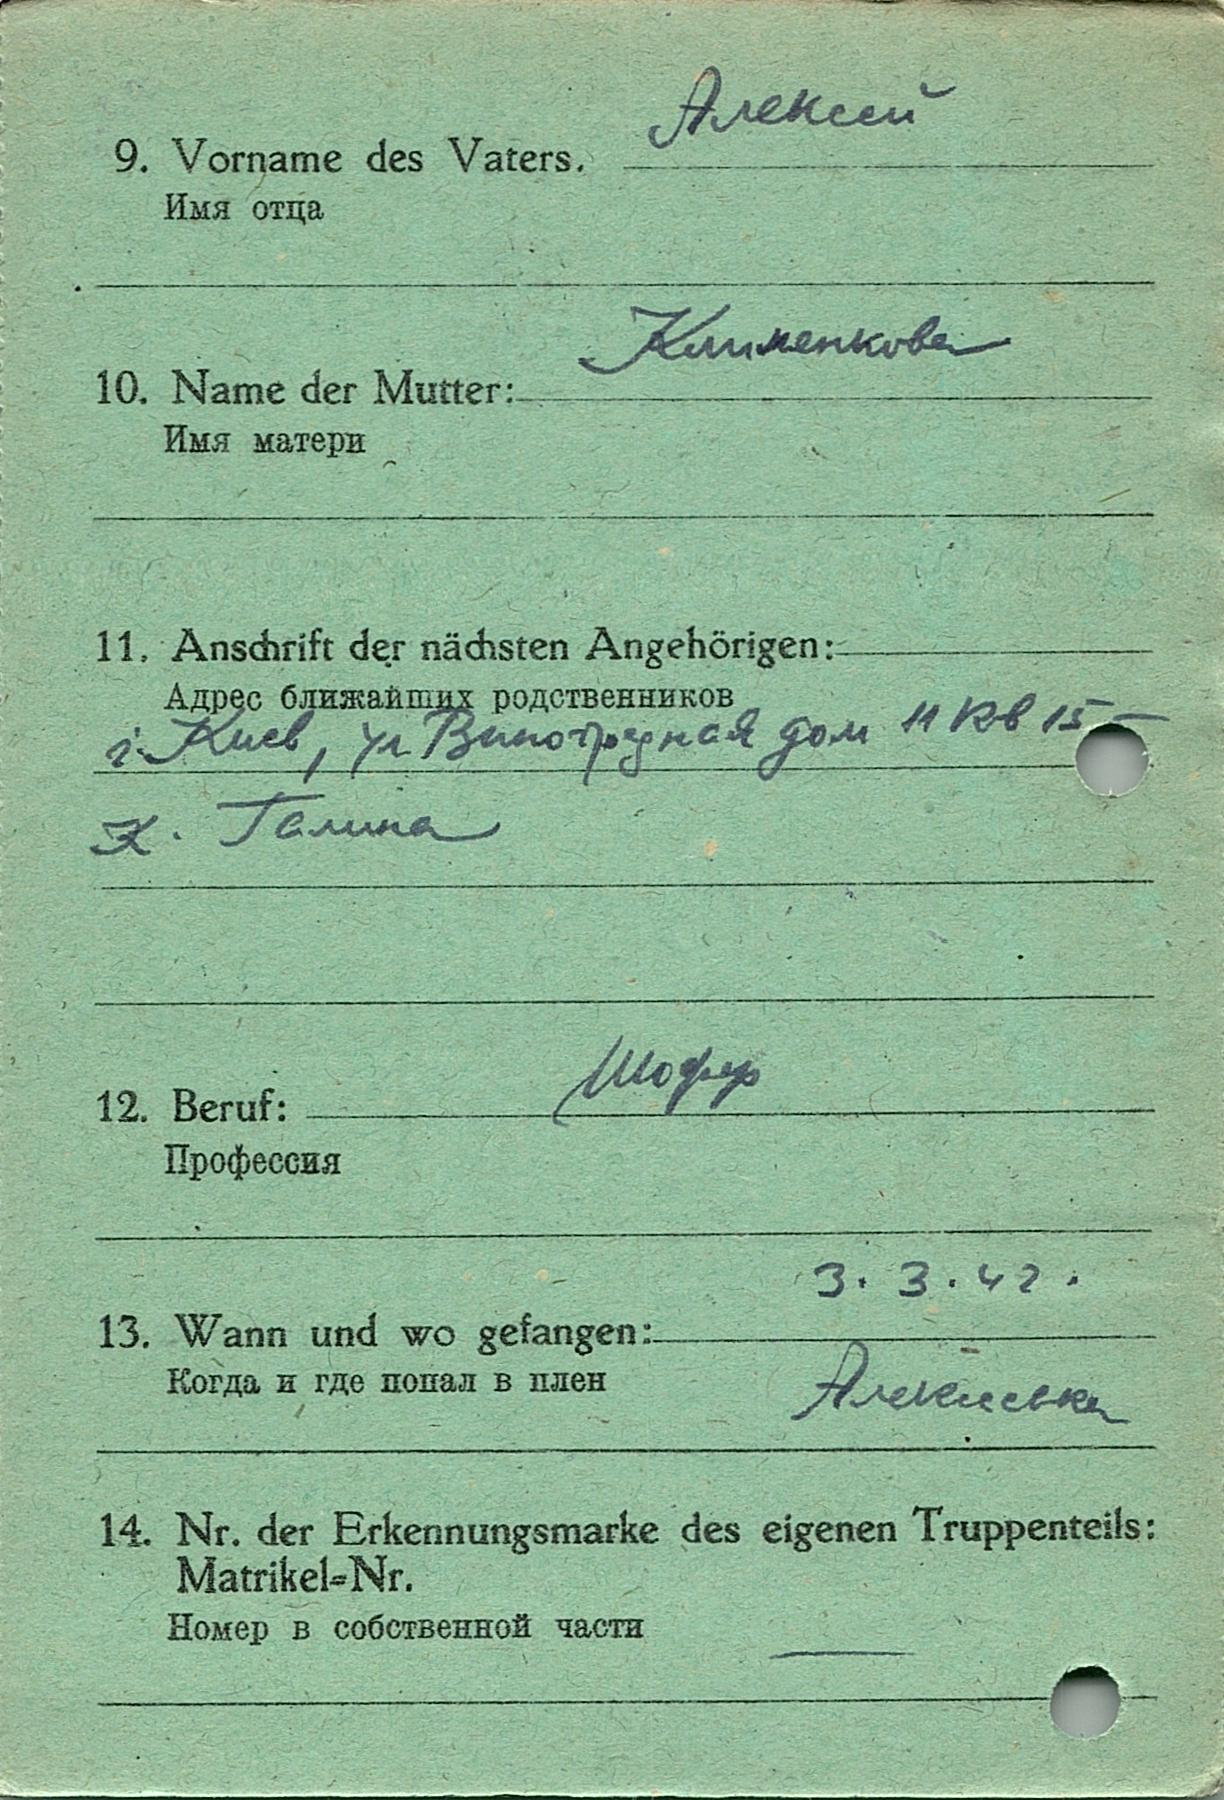 Алексей
9. Vorname des Vaters.
Имя отца
Клименкова
10. Name der Mutter:
Имя матери
11. Anschrift der nächsten Angehörigen:
Адрес ближайших родственников
г. Киев, ул Виноградная дом 11 кв 15
К. Галина
Шофер
12. Beruf:
Профессия
3. 3. 42.
13. Wann und wo gefangen:
Когда и где попал в плен
14. Nr. der Erkennungsmarke des eigenen Truppenteils:
Matrikel-Nr.
Номер в собственной части